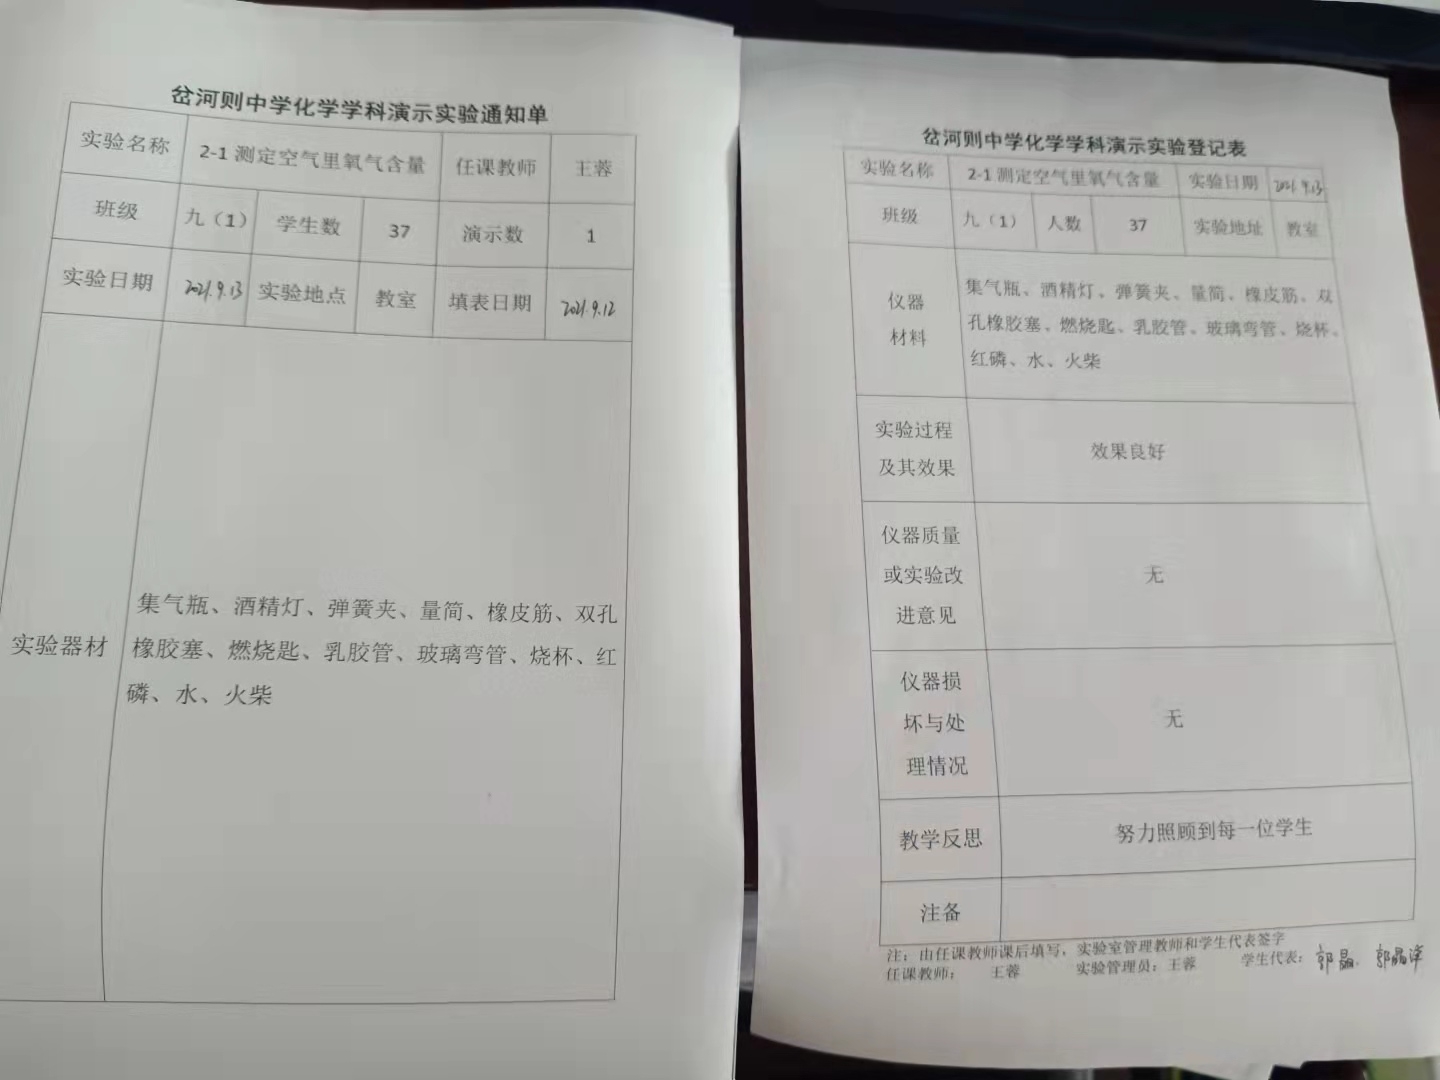 岔河则中学化学学科演示实验通知单
实验名称 2-1 测定空气里氧气含量 任课教师 王蓉
班级 九（1） 学生数 37 演示数 1
实验日期 2021.9.13 实验地点 教室 填表日期 2021.9.12
实验器材
集气瓶、酒精灯、弹簧夹、量简、橡皮筋、双孔
橡胶塞、燃烧匙、乳胶管、玻璃弯管、烧杯、红
磷、水、火柴
岔河则中学化学学科演示实验登记表
实验名称 2-1 测定空气里氧气含量 实验日期 2021.9.13
班级 九（1） 人数 37 实验地址 教室
仪器
材料
集气瓶、酒精灯、弹簧夹、量简、橡皮筋、双
孔橡胶塞、燃烧匙、乳胶管、玻璃弯管、烧杯、
红磷、水、火柴
实验过程
及其效果
效果良好
仪器质量
或实验改
进意见
无
仪器损
坏与处
理情况
无
教学反思 努力照顾到每一位学生
注备
注：由任课教师课后填写，实验室管理教师和学生代表签字
任课教师： 王蓉 实验管理员：王蓉 学生代表：郭晶、郭晶泽